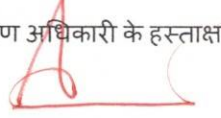 ण अधिकारी के हस्ताक्ष